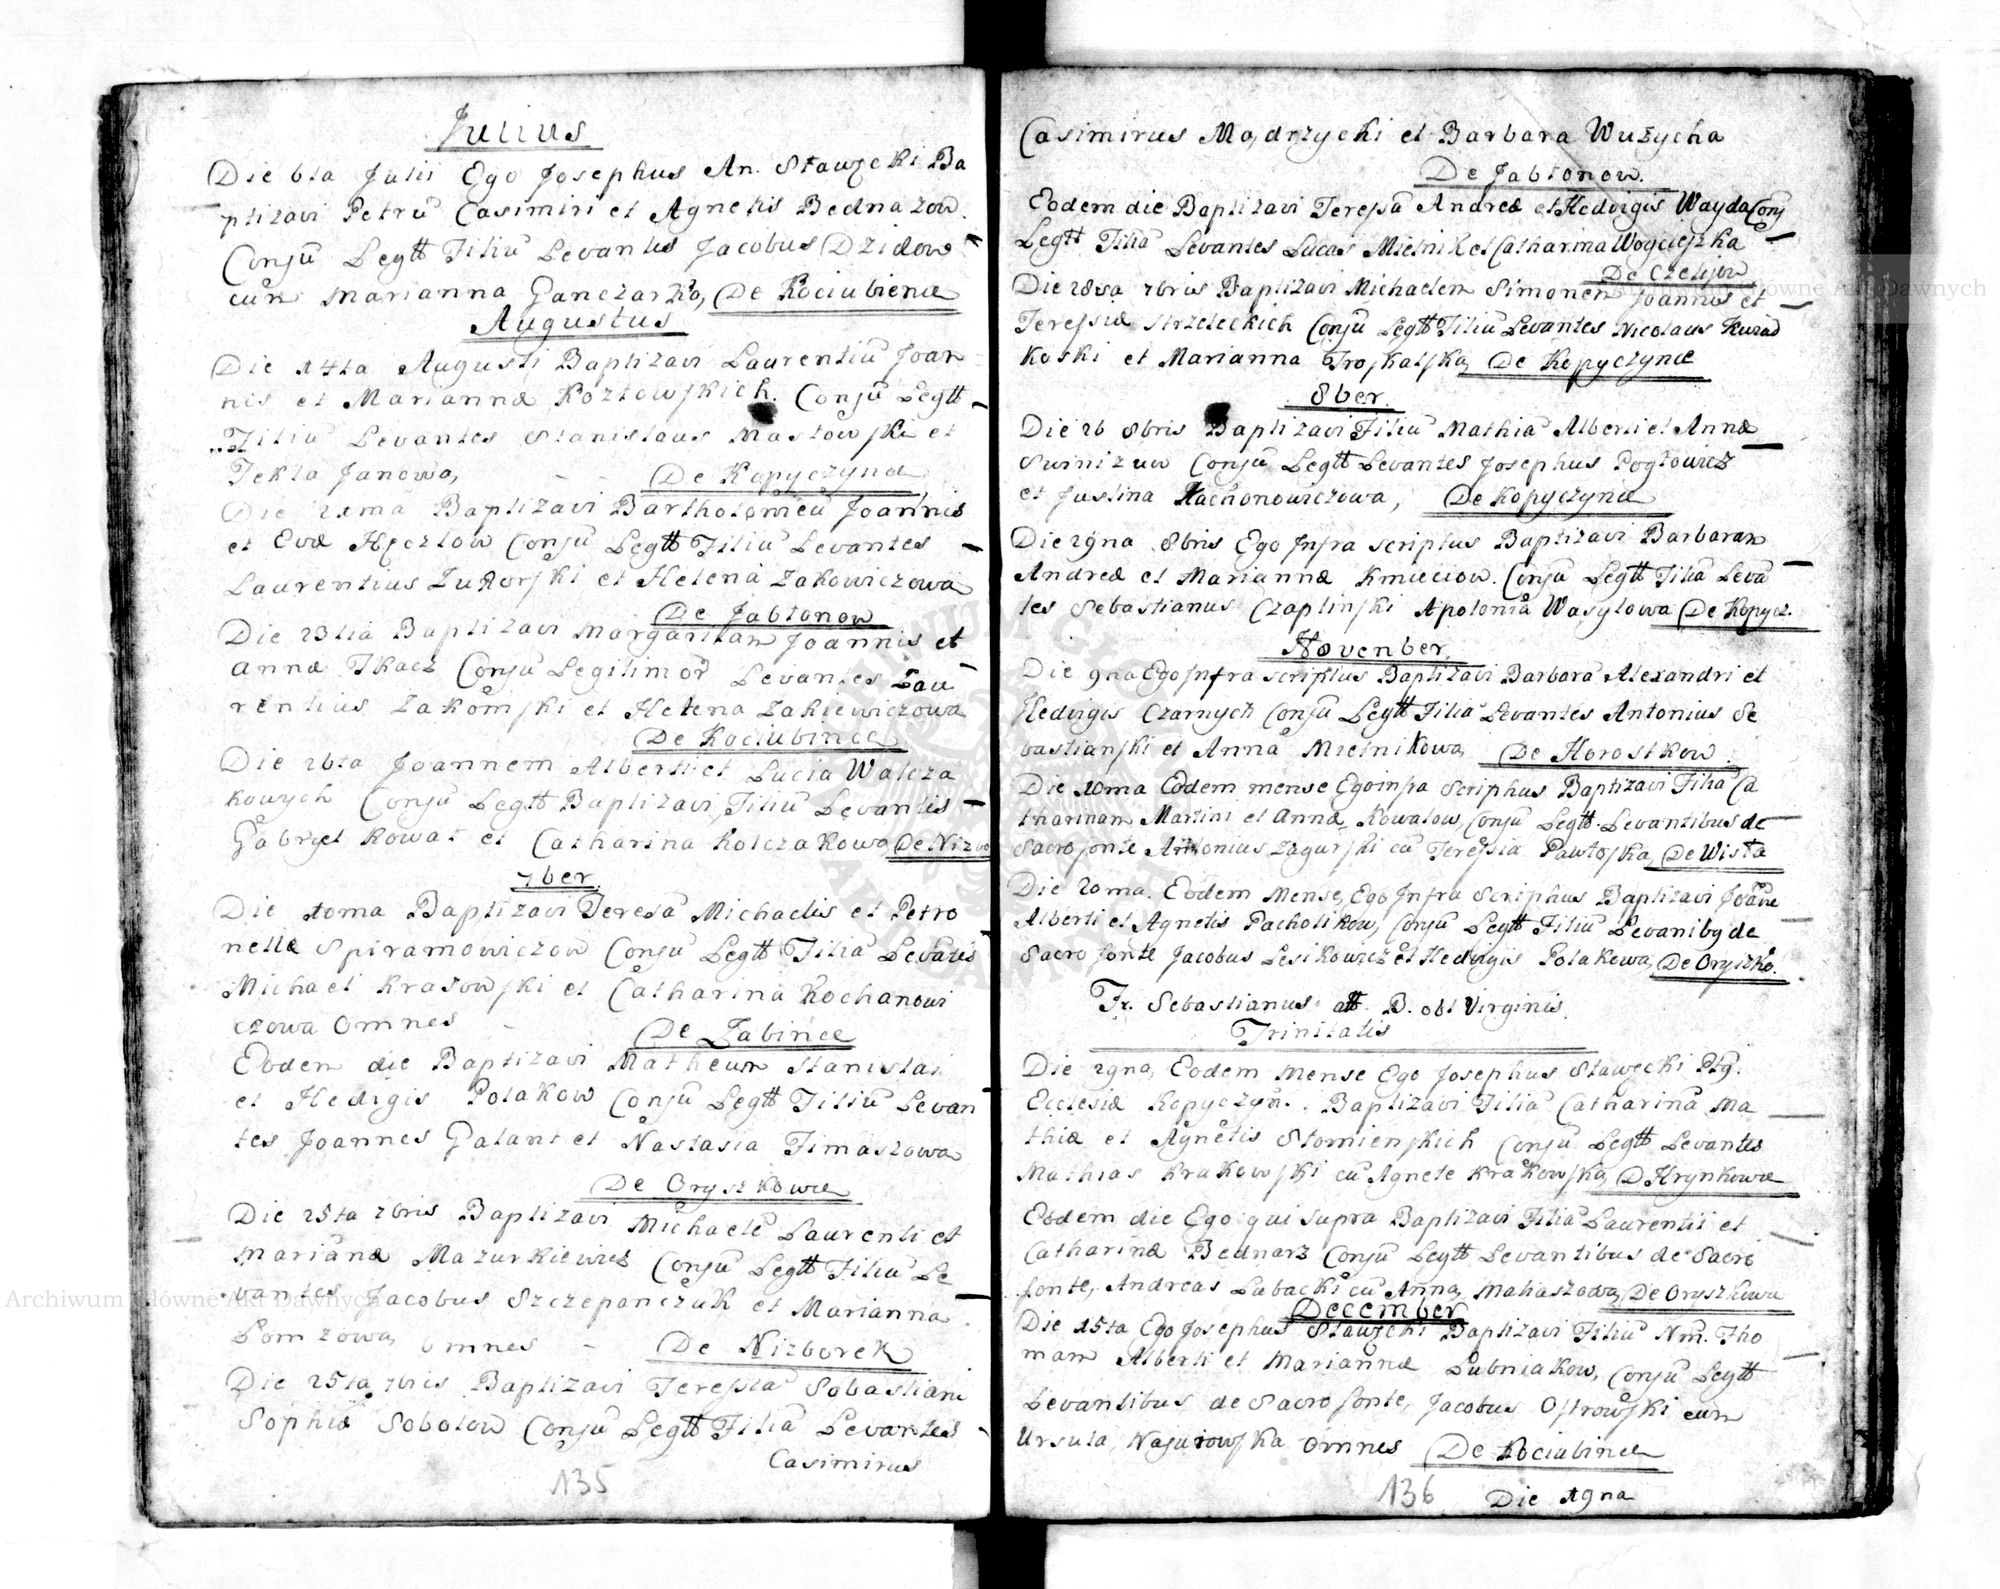 Julius
Die 6ta Julii Ego Josephus An. Stawęcki Ba
ptizavi Petrū Casimiri et Agnetis Bednazow.
Conjū Legtt Filiū Levantes Jacobus Dzidow
cum Marianna Ganczarka, De Kociubienæ
Augustus
Die 14ta Augusti Baptizavi Laurentiū Joan
nis et Mariannæ Kozłowskich. Conjū Legtt
Filiū Levantes Stanislaus Masłowski et
Tekla Janowa, De Kopyczynæ
Die Baptizavi Bartholomeū Joannis
et Evæ Conjū Legtt Filiū Levantes
Laurentius et Helena Zakowiczowa
De Jabłonow
Die 23tia Baptizavi Margaritam Joannis et
Annæ Tkacz Conjū Legitimor Levantes Lau
rentius Zakomski et Helena Zakiewiczowa
De Kociubincæ
Die 26ta Joannem Alberti et Lucia Walcza
kowych Conjū Legtt Baptizavi Filiū Levantis
Gabryel Kował et Catharina Kolczakowa, De Nizbo
7ber.
Die Baptizavi Teresā Michaelis et Petro
nellæ Spiramowiczow Conjū Legtt Filiā Levātes
Michael Krasowski et Catharina Kochanowi
czowa Omnes De Zabincæ
Eodem die Baptizavi Matheum Stanislai
et Hedigis Polakow Conjū Legtt Filiū Levan
tes Joannes Galant et Nastasia Timaszowa
De Oryszkowcæ
Die 25ta 7bris Baptizavi Michaelē Laurenti et
Mariānæ Mazurkiewicz Conjū Legtt Filiū Le
vantes Jacobus Szczepanczuk et Marianna
Lomzowa, Omnes De Nizborek
Die 25ta 7bris Baptizavi Teressiā Sobastiani
Sophiæ Sobolow Conjū Legtt Filiā Levantes
Casimirus
135
Casimirus Mądrzycki et Barbara Wużycha
De Jabłonow.
Eodem die Baptizavi Teressā Andreæ et Hedvigis Wayda Conj
Legtt Filiā Levantes Lucas Mielnik et Catharina Woycieszka
De Czelijow
Die 28va 7bris Baptizavi Michaelem Simonem Joannis et
Teressiæ Strzeleckich Conjū Legtt Filiū Levantes Nicolaus Kurad
koski et Marianna Troskalska, De Kopyczynæ
8ber.
Die 26 8bris Baptizavi Filiū Mathiā Alberti et Annæ
Swinizuw Conjū Legtt Levantes Josephus Pogłowicz
et Justina Kachonowiczowa, De Kopyczynæ
Die 29na 8bris Ego Infra scriptus Baptizavi Barbaram
Andreæ et Mariannæ Kmieciow. Conjū Legtt Filiā Levā
tes Sebastianus Czaplinski Apolonia Wasylowa De Kopycz.
November
Die 9na Ego Infra scriptus Baptizavi Barbarā Alexandri et
Hedvigis Czarnych Conjū Legtt Filiā Levantes Antonius Se
bastianski et Anna Mielnikowa, De Horostkow.
Die 20ma Eodem mense Ego infra Scriphus Baptizavi Filiā Ca
tharinam Martini et Annæ Kowalow, Conjū Legtt. Levantibus de
Sacro fonte Antonius Zagurski cū Teressia Pawłoska, De Wisła
Die 20ma. Eodem Mense, Ego Infra Scriphus Baptizavi Joāne
Alberti et Agnetis Pacholikow, Conjū Legtt Filiū Levanibg de
Sacro fonte Jacobus Lesikowicz et Hedvigis Polakowa, De Oryszko.
Fr. Sebastianus att B. obt Virginis.
Trinitatis
Die 29na, Eodem Mense Ego Josephus Stawęcki Ptg.
Ecclesiæ Kopyczyn. Baptizavi Filiā Catharinā Ma
thiæ et Agnetis Słomienskich Conjū Legtt Levantes
Mathias Krakowski cū Agnete Krakowska, D Hrynkowæ
Eodem die Ego qui supra Baptizavi Filiā Laurentii et
Catharinæ Bednarz Conjū Legtt Levantibus de Sacro
fonte, Andreas Labacki cū Anna, Matiaszowa, De Oryszkowæ
December
Die 15ta Ego Josephus Stawęcki Baptizavi Filiū Nm. Tho
mam Alberti et Mariannæ Lubniakow, Conjū Legtt
Levantibus de Sacro fonte, Jacobus Ostrowski cum
Ursula, Najurowska Omnes De Kociubincæ
136
Die 19na
Archiwum Główne Akt Dawnych